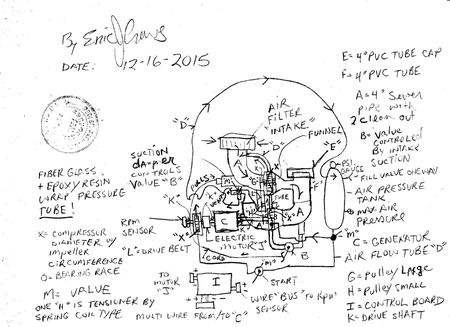 By Eric
DATE: 12-16-2015
E= 4" PVC TUBE CAP
F= 4" PVC TUBE
A= 4" Sewer
PIPE with
2 clean out
B= Value
CONTROLED
BY INTAKE
SUCTION
AIR
FILTER
"INTAKE"
"D"
"D"
FUNNEL
"E"
SUCTION
DAMPER
CONTROLS
VALUE "B"
"K"
FIBER GLASS
+ EPOXY RESIN
WRAP PRESSURE
TUBE!
X= COMPRESSOR
DIAMETER W/
IMPELLER
CIRCUMFERENCE
O= BEARING RACE
M= VALUE
ONE "H" IS TENSIONER BY
SPRING COIL TYPE
RPM
SENSOR
"L"= DRIVE BELT
"X"
C
TUBE
"F"
"X"
A
PSI
GAUGE
FILL VALVE ONE WAY
AIR PRESSURE
TANK
MAX AIR
PRESSURE
"M"
ELECTRIC
MOTOR "J"
CORD
B
"M"
START
TO
MOTOR
"J"
I
WIRE "BUS" TO RPM
SENSOR
MULTI WIRE FROM/TO "C"
C= GENERATOR
AIR FLOW TUBE "D"
G= PULLEY LARGE
H= PULLEY SMALL
I= CONTROL BOARD
K= DRIVE SHAFT